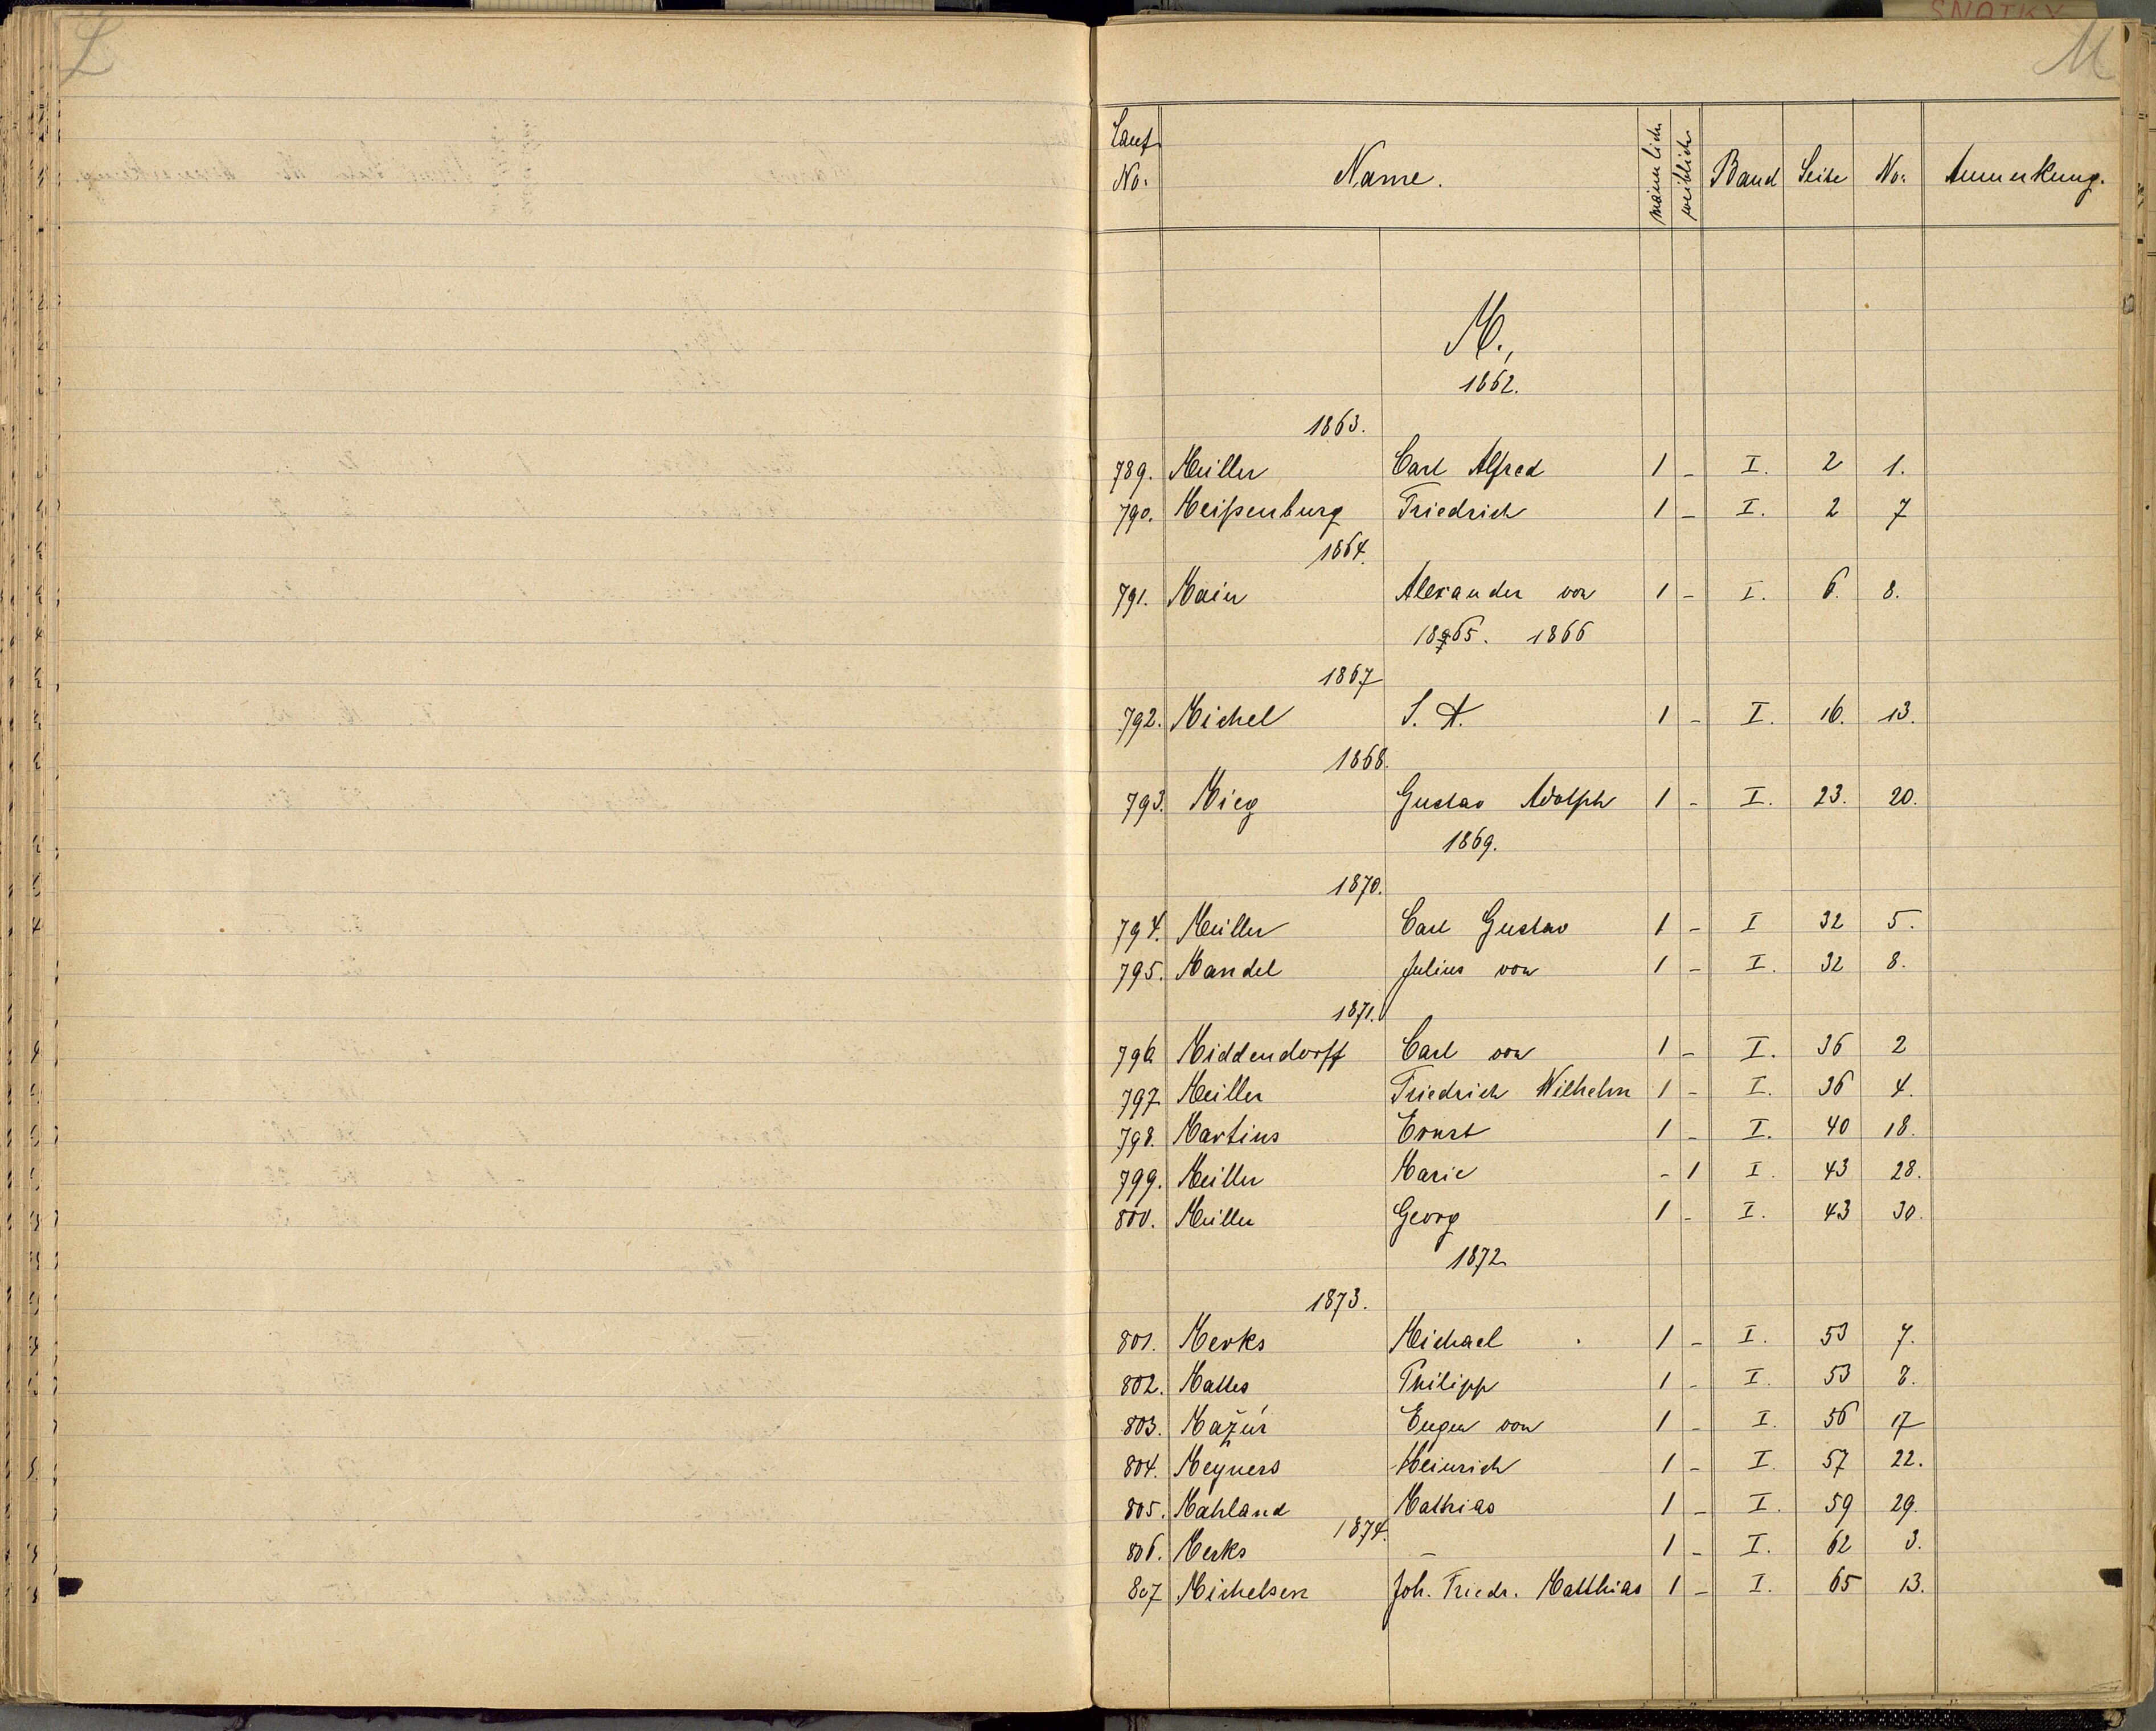 L
M
Lauf. No. Name. männlich weiblich Band Seite No. Anmerkung.
M.,
1862.
1863.
789. Müller Carl Alfred 1 - I. 2 1.
790. Meißenburg Friedrich 1 - I. 2 7
1864.
791. Main Alexander von 1 - I. 6. 8.
1865. 1866
1867
792. Michel S. A. 1 - I. 16. 13.
1868.
793. Mieg Gustav Adolph 1 - I. 23. 20.
1869.
1870.
794. Müller Carl Gustav 1 - I 32 5.
795. Mandel Julius von 1 - I. 32 8.
1871.
796 Middendorff Carl von 1 - I. 36 2
797 Müller Friedrich Wilhelm 1 - I. 36 4.
798. Martius Ernst 1 - I. 40 18.
799. Müller Marie - 1 I. 43 28.
800. Müller Georg 1 - I. 43 30.
1872
1873.
801. Merks Michael 1 - I. 53 7.
802. Mattes Philipp 1 - I. 53 8.
803. Mažúr Eugen von 1 - I. 56 17
804. Meyners Heinrich 1 - I. 57 22.
805. Mahland Mathias 1 - I. 59 29.
1874.
806. Merks - 1 - I. 62 3.
807 Michelsen Joh. Friedr. Matthias 1 - I. 65 13.